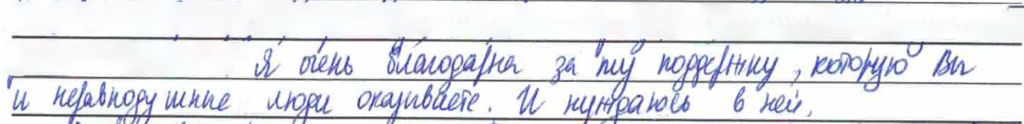 Я очень благодарна за ту поддержку, которую Вы
и неравнодушные люди оказываете. И нуждаюсь в ней,